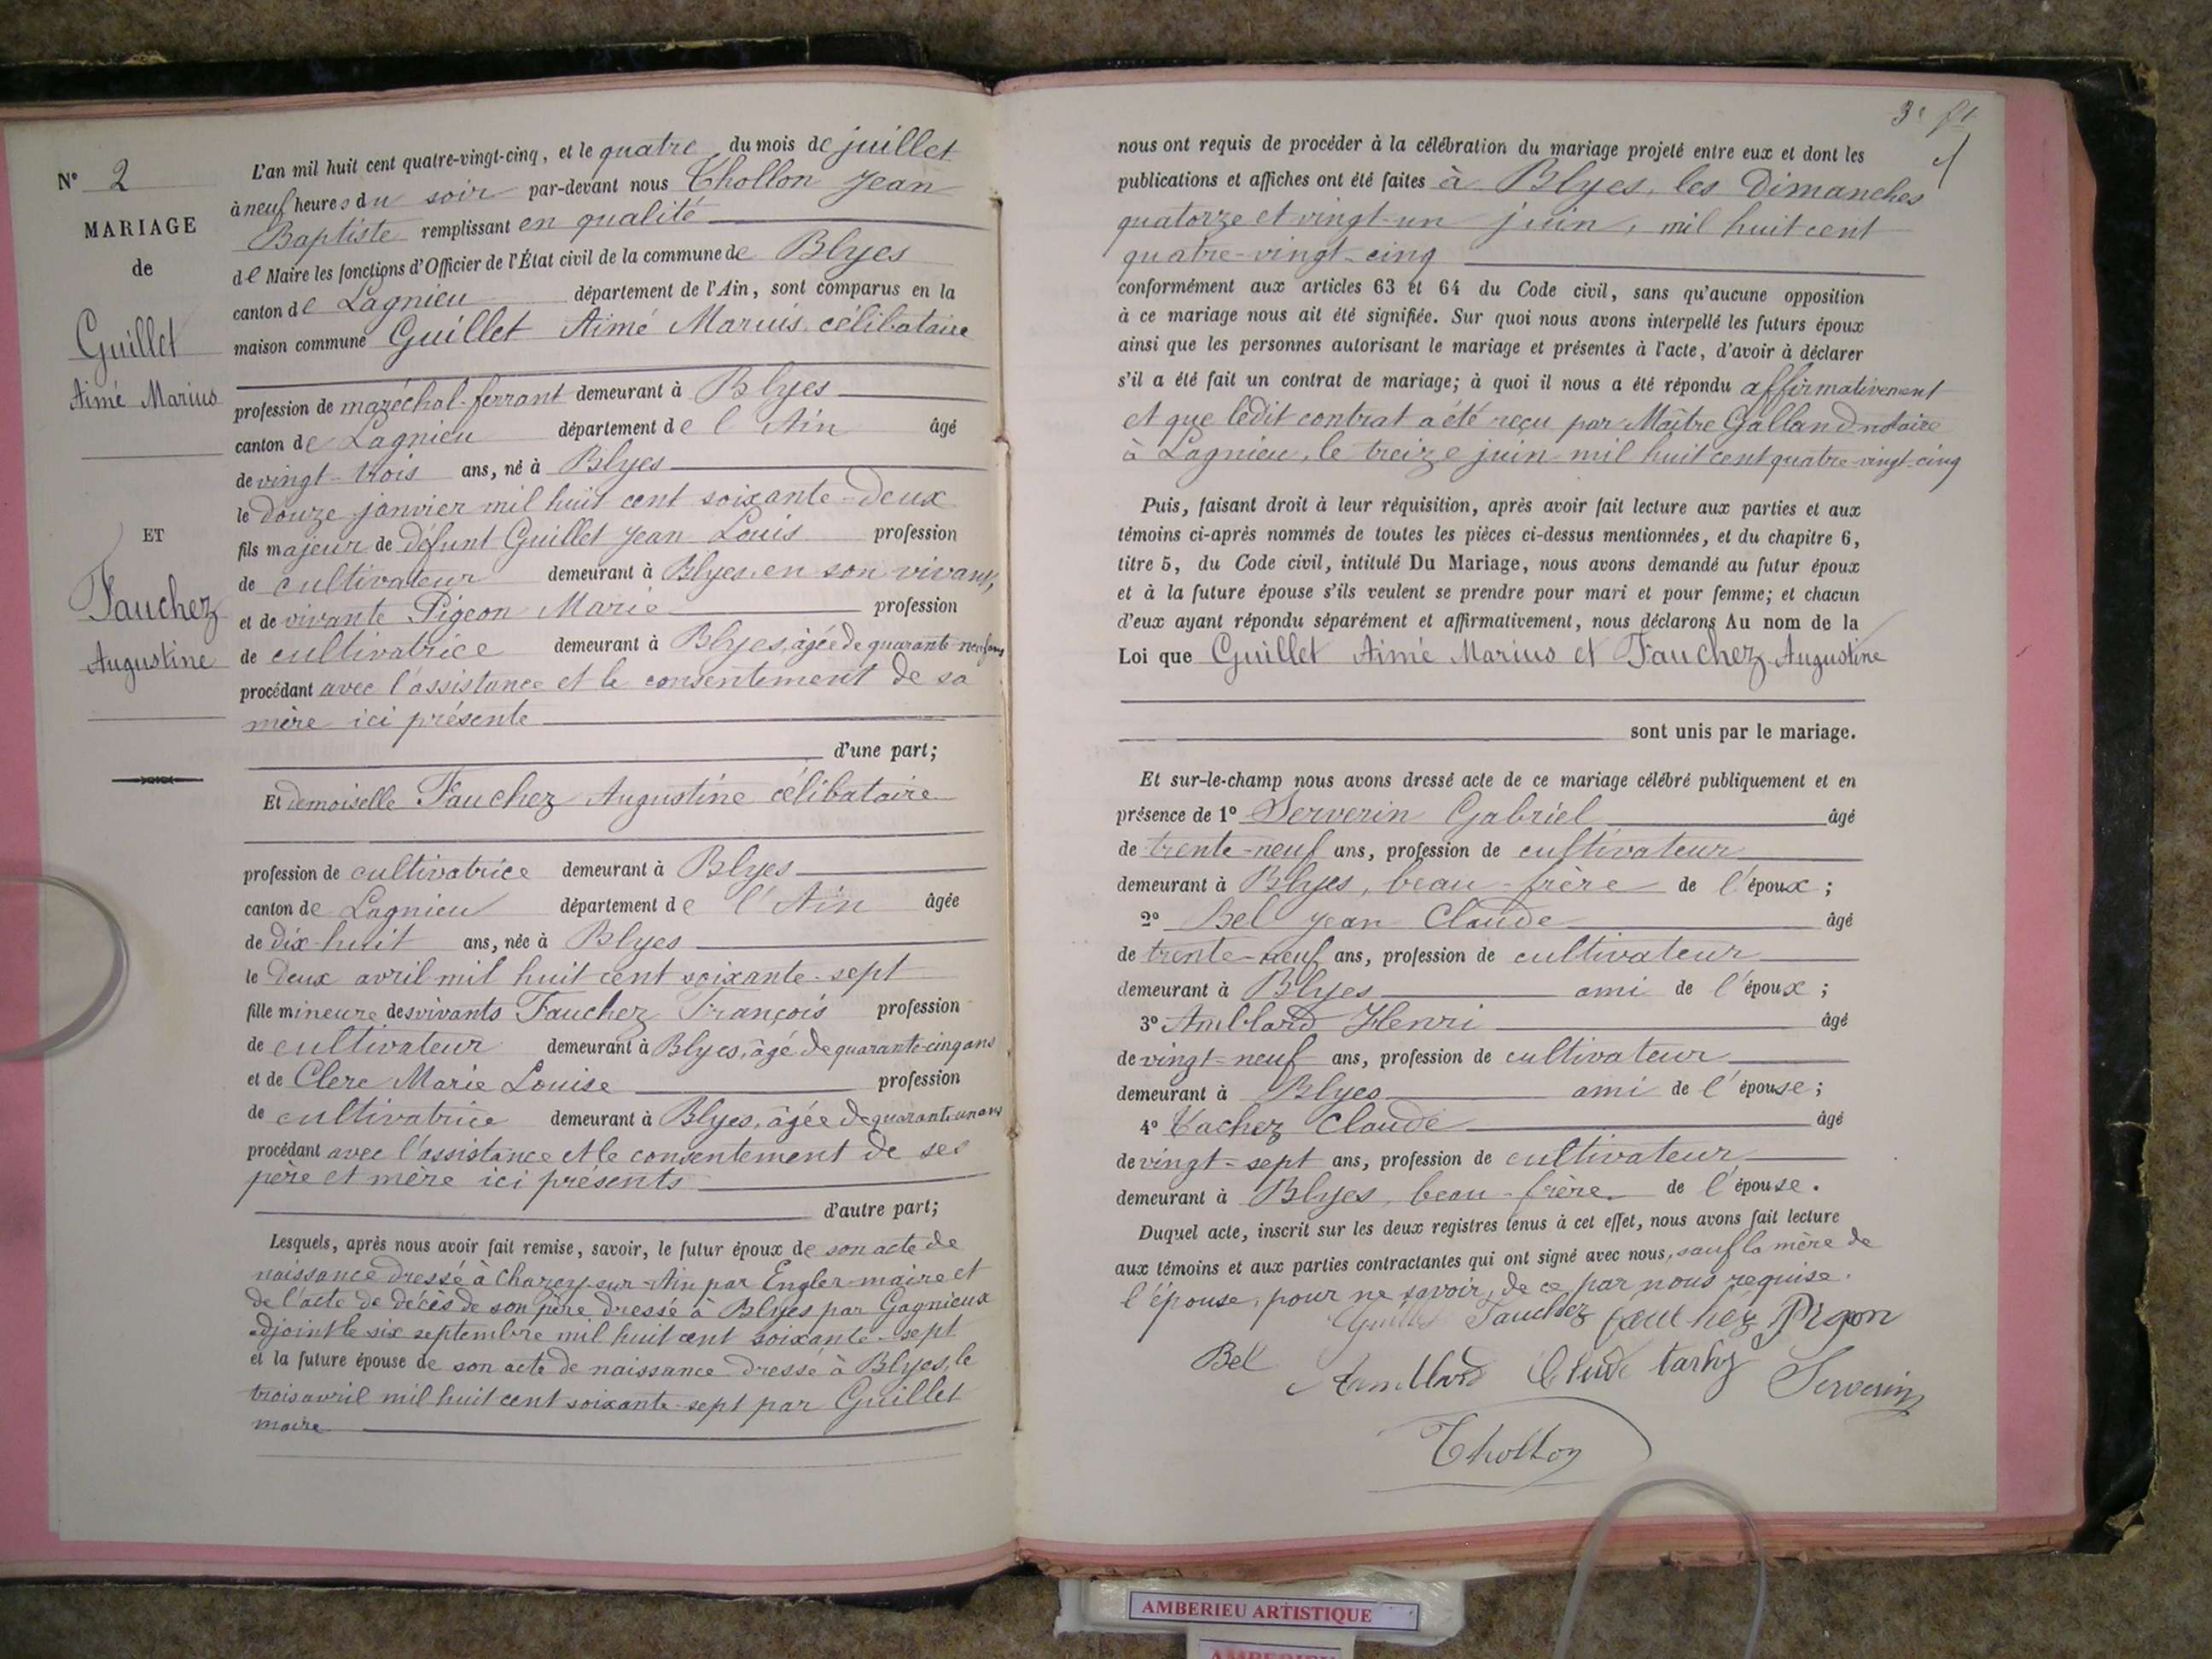 N° 2
MARIAGE
de
Guillet
Aimé Marius
ET
Fauchez
Augustine
L'an mil huit cent quatre-vingt-cinq, et le quatre du mois de juillet
à neuf heures du soir par-devant nous Thollon Jean
Baptiste remplissant en qualité
de Maire les fonctions d'Officier de l'État civil de la commune de Blyes
canton de Lagnieu département de l'Ain, sont comparus en la
maison commune Guillet Aimé Marius célibataire
profession de maréchal-ferrant demeurant à Blyes
canton de Lagnieu département de l'Ain âgé
de vingt-trois ans, né à Blyes
le douze janvier mil huit cent soixante-deux
fils majeur de défunt Guillet Jean Louis profession
de cultivateur demeurant à Blyes, en son vivant,
et de vivante Pigeon Marie profession
de cultivatrice demeurant à Blyes, âgée de quarante-neuf ans
procédant avec l'assistance et le consentement de sa
mère ici présente
d'une part;
Et demoiselle Fauchez Augustine célibataire
profession de cultivatrice demeurant à Blyes
canton de Lagnieu département de l'Ain âgée
de dix-huit ans, née à Blyes
le deux avril mil huit cent soixante-sept
fille mineure des vivants Fauchez François profession
de cultivateur demeurant à Blyes, âgé de quarante-cinq ans
et de Clerc Marie Louise profession
de cultivatrice demeurant à Blyes, âgée de quarante-un ans
procédant avec l'assistance et le consentement de ses
père et mère ici présents
d'autre part;
Lesquels, après nous avoir fait remise, savoir, le futur époux de son acte de
naissance dressé à Charey-sur-Ain par Engler maire et
de l'acte de décès de son père dressé à Blyes par Gagnieux
adjoint le six septembre mil huit cent soixante-sept
et la future épouse de son acte de naissance dressé à Blyes, le
trois avril mil huit cent soixante-sept par Guillet
maire
3e
nous ont requis de procéder à la célébration du mariage projeté entre eux et dont les
publications et affiches ont été faites à Blyes, les Dimanches
quatorze et vingt-un juin, mil huit cent
quatre-vingt-cinq
conformément aux articles 63 et 64 du Code civil, sans qu'aucune opposition
à ce mariage nous ait été signifiée. Sur quoi nous avons interpellé les futurs époux
ainsi que les personnes autorisant le mariage et présentes à l'acte, d'avoir à déclarer
s'il a été fait un contrat de mariage; à quoi il nous a été répondu affirmativement
et que ledit contrat a été reçu par Maître Galland notaire
à Lagnieu, le treize juin mil huit cent quatre-vingt-cinq
Puis, faisant droit à leur réquisition, après avoir fait lecture aux parties et aux
témoins ci-après nommés de toutes les pièces ci-dessus mentionnées, et du chapitre 6,
titre 5, du Code civil, intitulé Du Mariage, nous avons demandé au futur époux
et à la future épouse s'ils veulent se prendre pour mari et pour femme; et chacun
d'eux ayant répondu séparément et affirmativement, nous déclarons Au nom de la
Loi que Guillet Aimé Marius et Fauchez Augustine
sont unis par le mariage.
Et sur-le-champ nous avons dressé acte de ce mariage célébré publiquement et en
présence de 1° Serverin Gabriel âgé
de trente-neuf ans, profession de cultivateur
demeurant à Blyes, beau-frère de l'époux;
2° Bel Jean Claude âgé
de trente-neuf ans, profession de cultivateur
demeurant à Blyes ami de l'époux;
3° Amblard Henri âgé
de vingt-neuf ans, profession de cultivateur
demeurant à Blyes ami de l'épouse;
4° Tachez Claude âgé
de vingt-sept ans, profession de cultivateur
demeurant à Blyes, beau-frère de l'épouse.
Duquel acte, inscrit sur les deux registres tenus à cet effet, nous avons fait lecture
aux témoins et aux parties contractantes qui ont signé avec nous, sauf la mère de
l'épouse, pour ne savoir, de ce par nous requise.
Guillet Fauchez fauchez Pigon
Bel Amblard Claude Serverin
Thollon
AMBERIEU ARTISTIQUE
AMBERIEU